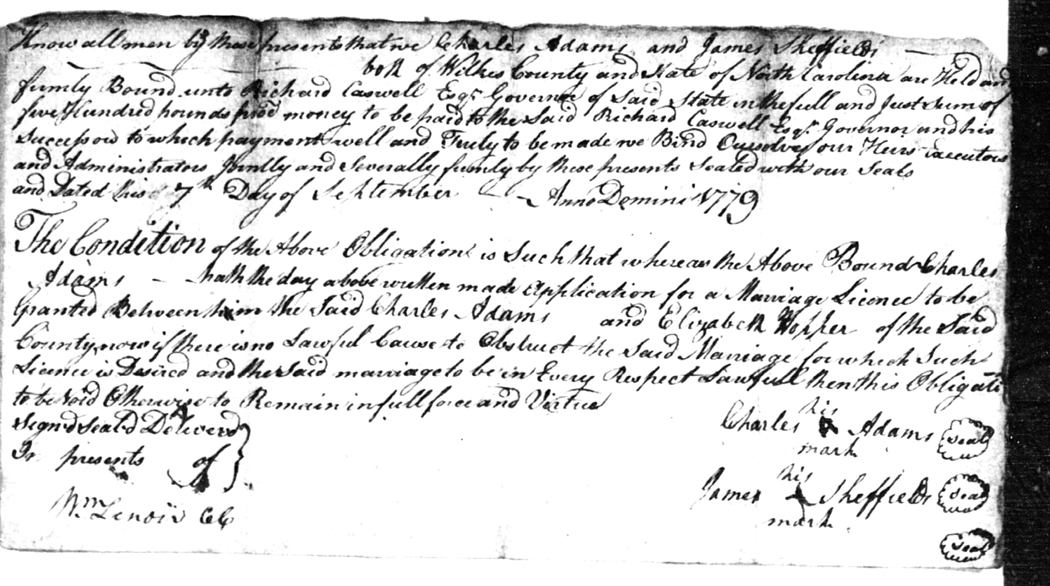 Know all men by these presents that we Charles Adams and James Sheffields
both of Wilkes County and State of North Carolina are Held and
firmly Bound unto Richard Caswell Esqr Governor of Said State in the full and Just Sum of
five Hundred pounds procl money to be paid to the Said Richard Caswell Esqr. Governor and his
Successors to which payment well and Truly to be made we Bind Ourselves our Heirs Executors
and Administrators Jointly and Severally firmly by these presents Sealed with our Seals
and Dated this 7th Day of September Anno Domini 1779
The Condition of the Above Obligation is Such that whereas the Above Bound Charles
Adams hath the day above written made Application for a Marriage Licence to be
Granted Between him the Said Charles Adams and Elizabeth Hopper of the Said
County now if there is no Lawful Cause to Obstruct the Said Marriage for which Such
Licence is Desired and the Said marriage to be in Every Respect Lawfull then this Obligati
to be Void Otherwise to Remain in full force and Virtue
Signd Seald Deliverd
In presents of
Wm Lenoir CC
Charles his mark Adams Seal
James his mark Sheffields Seal
Seal